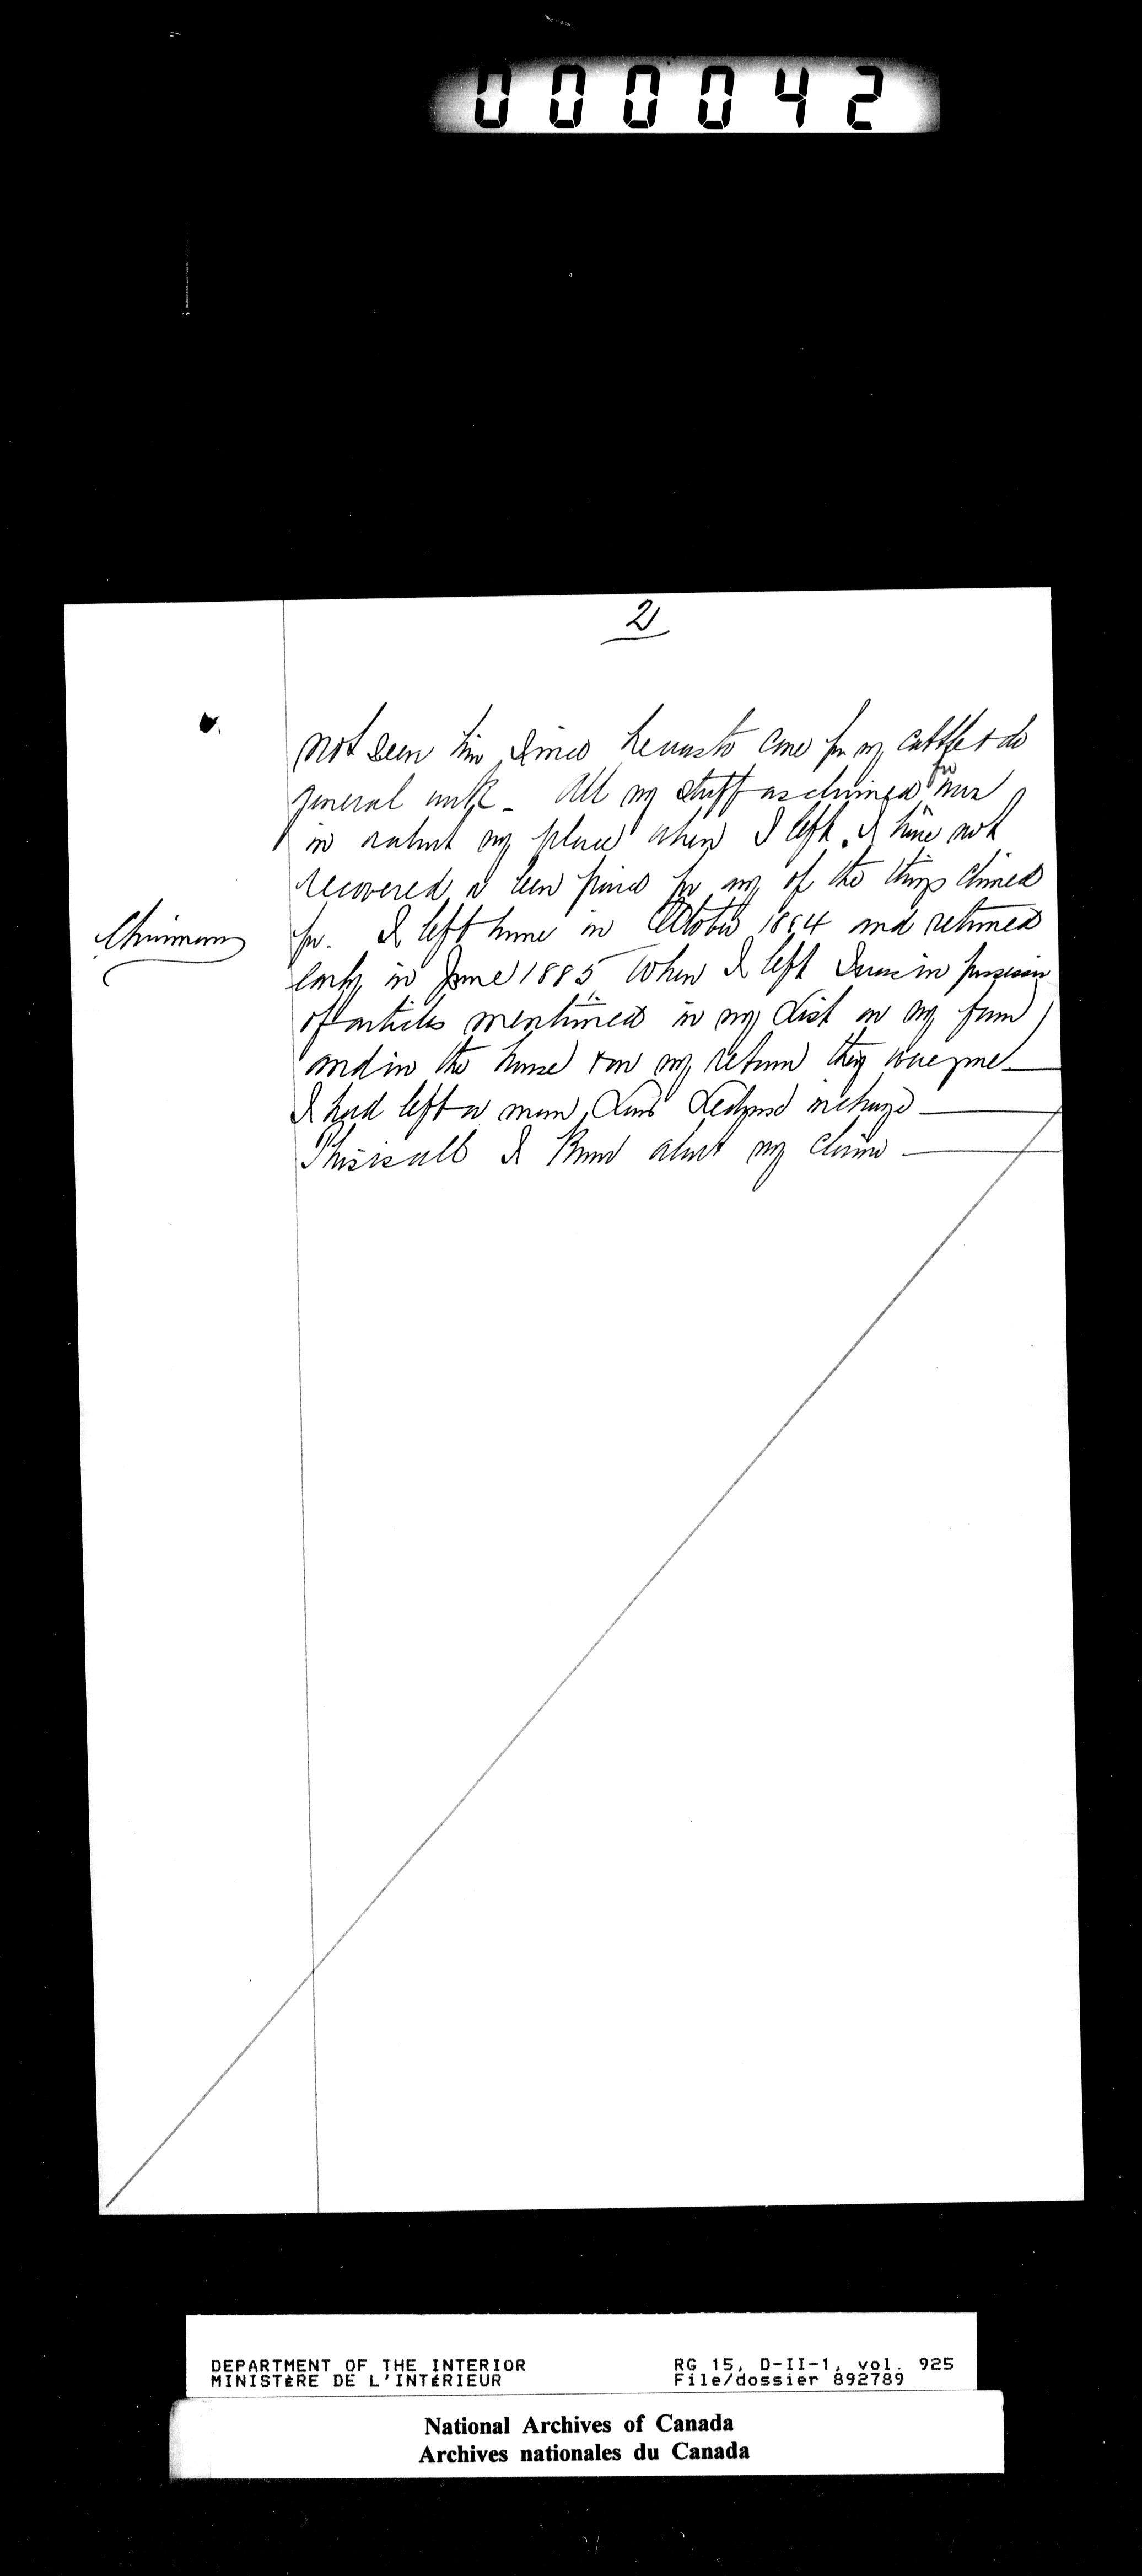 000042
2
not seen him since he was to care for my cattle & do
general work - All my stuff as claimed for was
in & about my place when I left. I have not
recovered or been paid for any of the things claimed
Chairman
for. I left home in October 1884 and returned
early in June 1885 When I left I was in possession
of articles mentioned in my List on my farm
and in the house & on my return they were gone
I had left a man, Louis in charge
This is all I know about my claim
DEPARTMENT OF THE INTERIOR
MINISTÈRE DE L'INTÉRIEUR
RG 15, D-II-1, vol. 925
File/dossier 892789
National Archives of Canada
Archives nationales du Canada